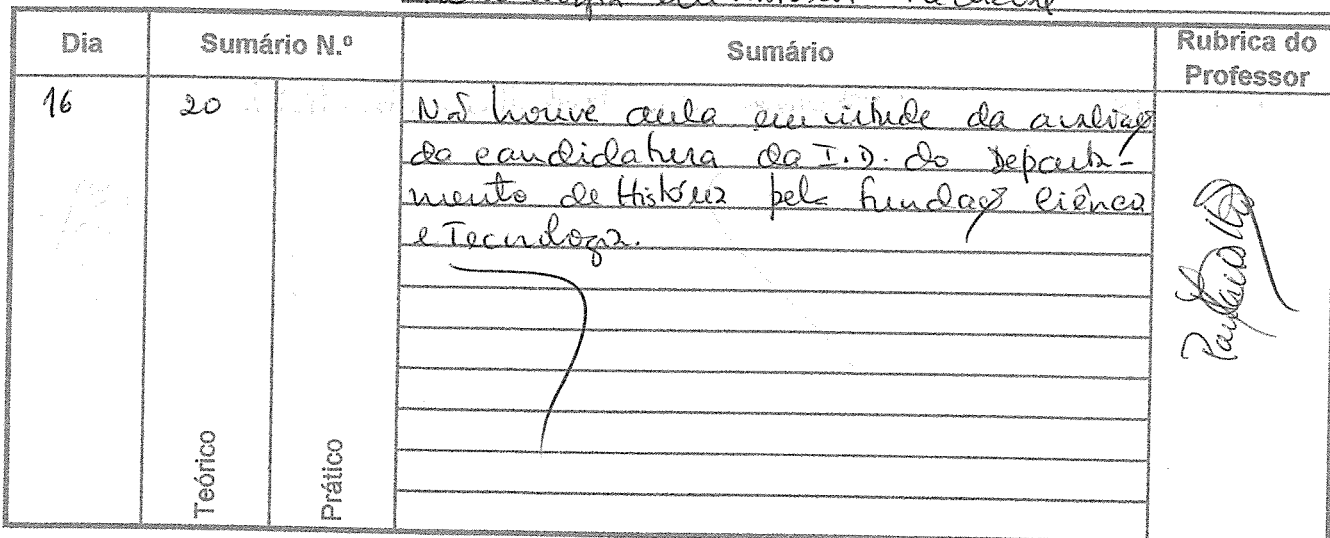 Dia Sumário N.º Sumário Rubrica do Professor
16 20 Nõ houve aula em virtude da avaliação
da candidatura da I.D. do Departa-
mento de História pela Fundação Ciência
e Tecnologia.
Teórico Prático